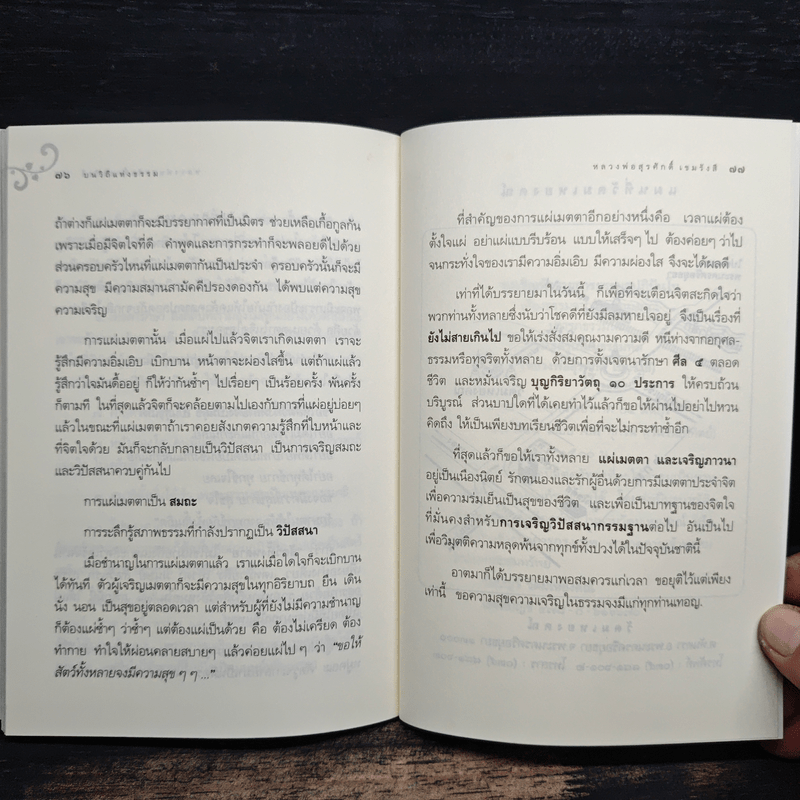 ๗๖ บนวิถีแห่งธรรม
ถ้าต่างก็แผ่เมตตาก็จะมีบรรยากาศที่เป็นมิตร ช่วยเหลือเกื้อกูลกัน
เพราะเมื่อมีจิตใจที่ดี คำพูดและการกระทำก็จะพลอยดีไปด้วย
ส่วนครอบครัวไหนที่แผ่เมตตากันเป็นประจำ ครอบครัวนั้นก็จะมี
ความสุข มีความสมานสามัคคีปรองดองกัน ได้พบแต่ความสุข
ความเจริญ
การแผ่เมตตานั้น เมื่อแผ่ไปแล้วจิตเราเกิดเมตตา เราจะ
รู้สึกมีความอิ่มเอิบ เบิกบาน หน้าตาจะผ่องใสขึ้น แต่ถ้าแผ่แล้ว
รู้สึกว่าใจมันดื้ออยู่ ก็ให้ว่ากันซ้ำๆ ไปเรื่อยๆ เป็นร้อยครั้ง พันครั้ง
ก็ตามที ในที่สุดแล้วจิตก็จะคล้อยตามไปเองกับการที่แผ่อยู่บ่อยๆ
แล้วในขณะที่แผ่เมตตาถ้าเราคอยสังเกตความรู้สึกที่ใบหน้าและ
ที่จิตใจด้วย มันก็จะกลับกลายเป็นวิปัสสนา เป็นการเจริญสมถะ
และวิปัสสนาควบคู่กันไป
การแผ่เมตตาเป็น สมถะ
การระลึกรู้สภาพธรรมที่กำลังปรากฏเป็น วิปัสสนา
เมื่อชำนาญในการแผ่เมตตาแล้ว เราแผ่เมื่อใดใจก็จะเบิกบาน
ได้ทันที ตัวผู้เจริญเมตตาก็จะมีความสุขในทุกอิริยาบถ ยืน เดิน
นั่ง นอน เป็นสุขอยู่ตลอดเวลา แต่สำหรับผู้ที่ยังไม่มีความชำนาญ
ก็ต้องแผ่ซ้ำๆ ว่าซ้ำๆ แต่ต้องแผ่เป็นด้วย คือ ต้องไม่เครียด ต้อง
ทำกาย ทำใจให้ผ่อนคลายสบายๆ แล้วค่อยแผ่ไป ๆ ว่า “ขอให้
สัตว์ทั้งหลายจงมีความสุข ๆ ๆ ...”
หลวงพ่อสุรศักดิ์ เขมรังสี ๗๗
ที่สำคัญของการแผ่เมตตาอีกอย่างหนึ่งคือ เวลาแผ่ต้อง
ตั้งใจแผ่ อย่าแผ่แบบรีบร้อน แบบให้เสร็จๆ ไป ต้องค่อยๆ ว่าไป
จนกระทั่งใจของเรามีความอิ่มเอิบ มีความผ่องใส จึงจะได้ผลดี
เท่าที่ได้บรรยายมาในวันนี้ ก็เพื่อที่จะเตือนจิตสะกิดใจว่า
พวกท่านทั้งหลายซึ่งนับว่าโชคดีที่ยังมีลมหายใจอยู่ จึงเป็นเรื่องที่
ยังไม่สายเกินไป ขอให้เร่งสั่งสมคุณงามความดี หนีห่างจากอกุศล-
ธรรมหรือทุจริตทั้งหลาย ด้วยการตั้งเจตนารักษา ศีล ๕ ตลอด
ชีวิต และหมั่นเจริญ บุญกิริยาวัตถุ ๑๐ ประการ ให้ครบถ้วน
บริบูรณ์ ส่วนบาปใดที่ได้เคยทำไว้แล้วก็ขอให้ผ่านไปอย่าไปหวน
คิดถึง ให้เป็นเพียงบทเรียนชีวิตเพื่อที่จะไม่กระทำซ้ำอีก
ที่สุดแล้วก็ขอให้เราทั้งหลาย แผ่เมตตา และเจริญภาวนา
อยู่เป็นเนืองนิตย์ รักตนเองและรักผู้อื่นด้วยการมีเมตตาประจำจิต
เพื่อความร่มเย็นเป็นสุขของชีวิต และเพื่อเป็นบาทฐานของจิตใจ
ที่มั่นคงสำหรับการเจริญวิปัสสนากรรมฐานต่อไป อันเป็นไป
เพื่อวิมุตติความหลุดพ้นจากทุกข์ทั้งปวงได้ในปัจจุบันชาตินี้
อาตมาก็ได้บรรยายมาพอสมควรแก่เวลา ขอยุติไว้แต่เพียง
เท่านี้ ขอความสุขความเจริญในธรรมจงมีแก่ทุกท่านเทอญ.